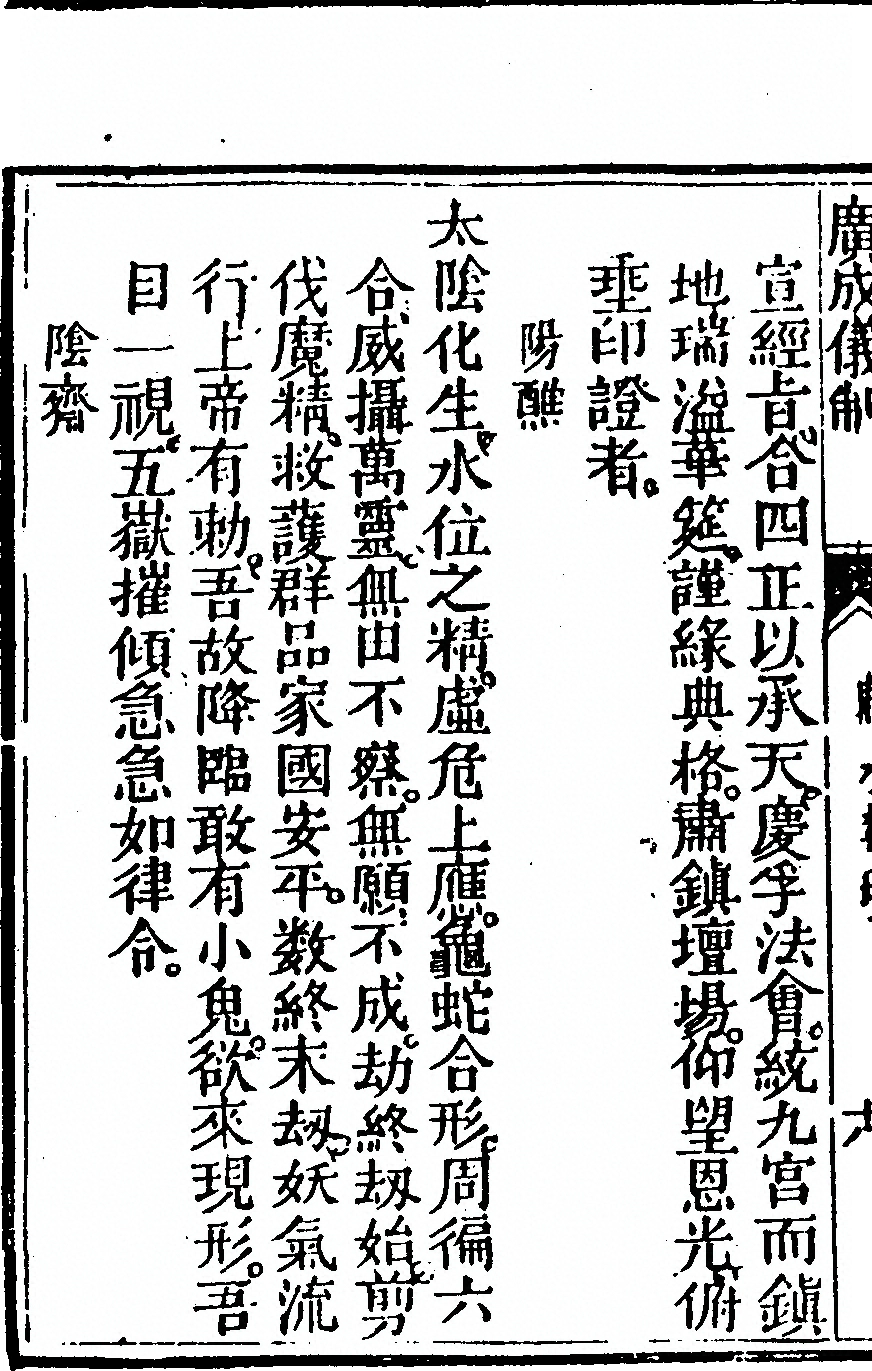 廣成儀制
宣經旨。合四正以承天。慶孚法會。統九宮而鎮
地瑞溢華筵。謹緣典格。肅鎮壇場。仰望恩光。俯
垂印證者。
陽醮
太陰化生。水位之精。虛危上應。龜蛇合形。周徧六
合。威攝萬靈。無由不察。無願不成。劫終刼始。剪
伐魔精。救護群品家國安平。数終末刼。妖氣流
行。上帝有勅。吾故降臨敢有小鬼。欲來現形。吾
目一視。五嶽摧傾急急如律令。
陰齋